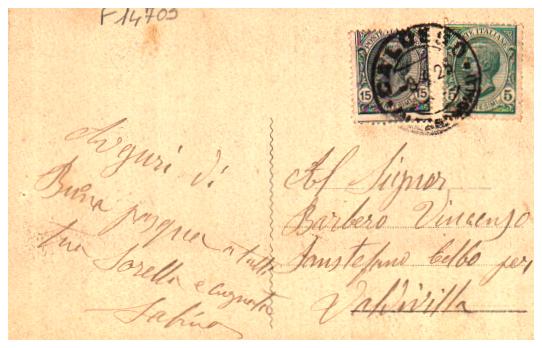 F 14709
POSTE ITALIANE
15 15
5
CALOSSO
Auguri di
Buona pasqua a tutti
tua Sorella e cugnato
Sabino
Al Signor
Barbero Vincenzo
Sanstefano Belbo per
Valdivilla